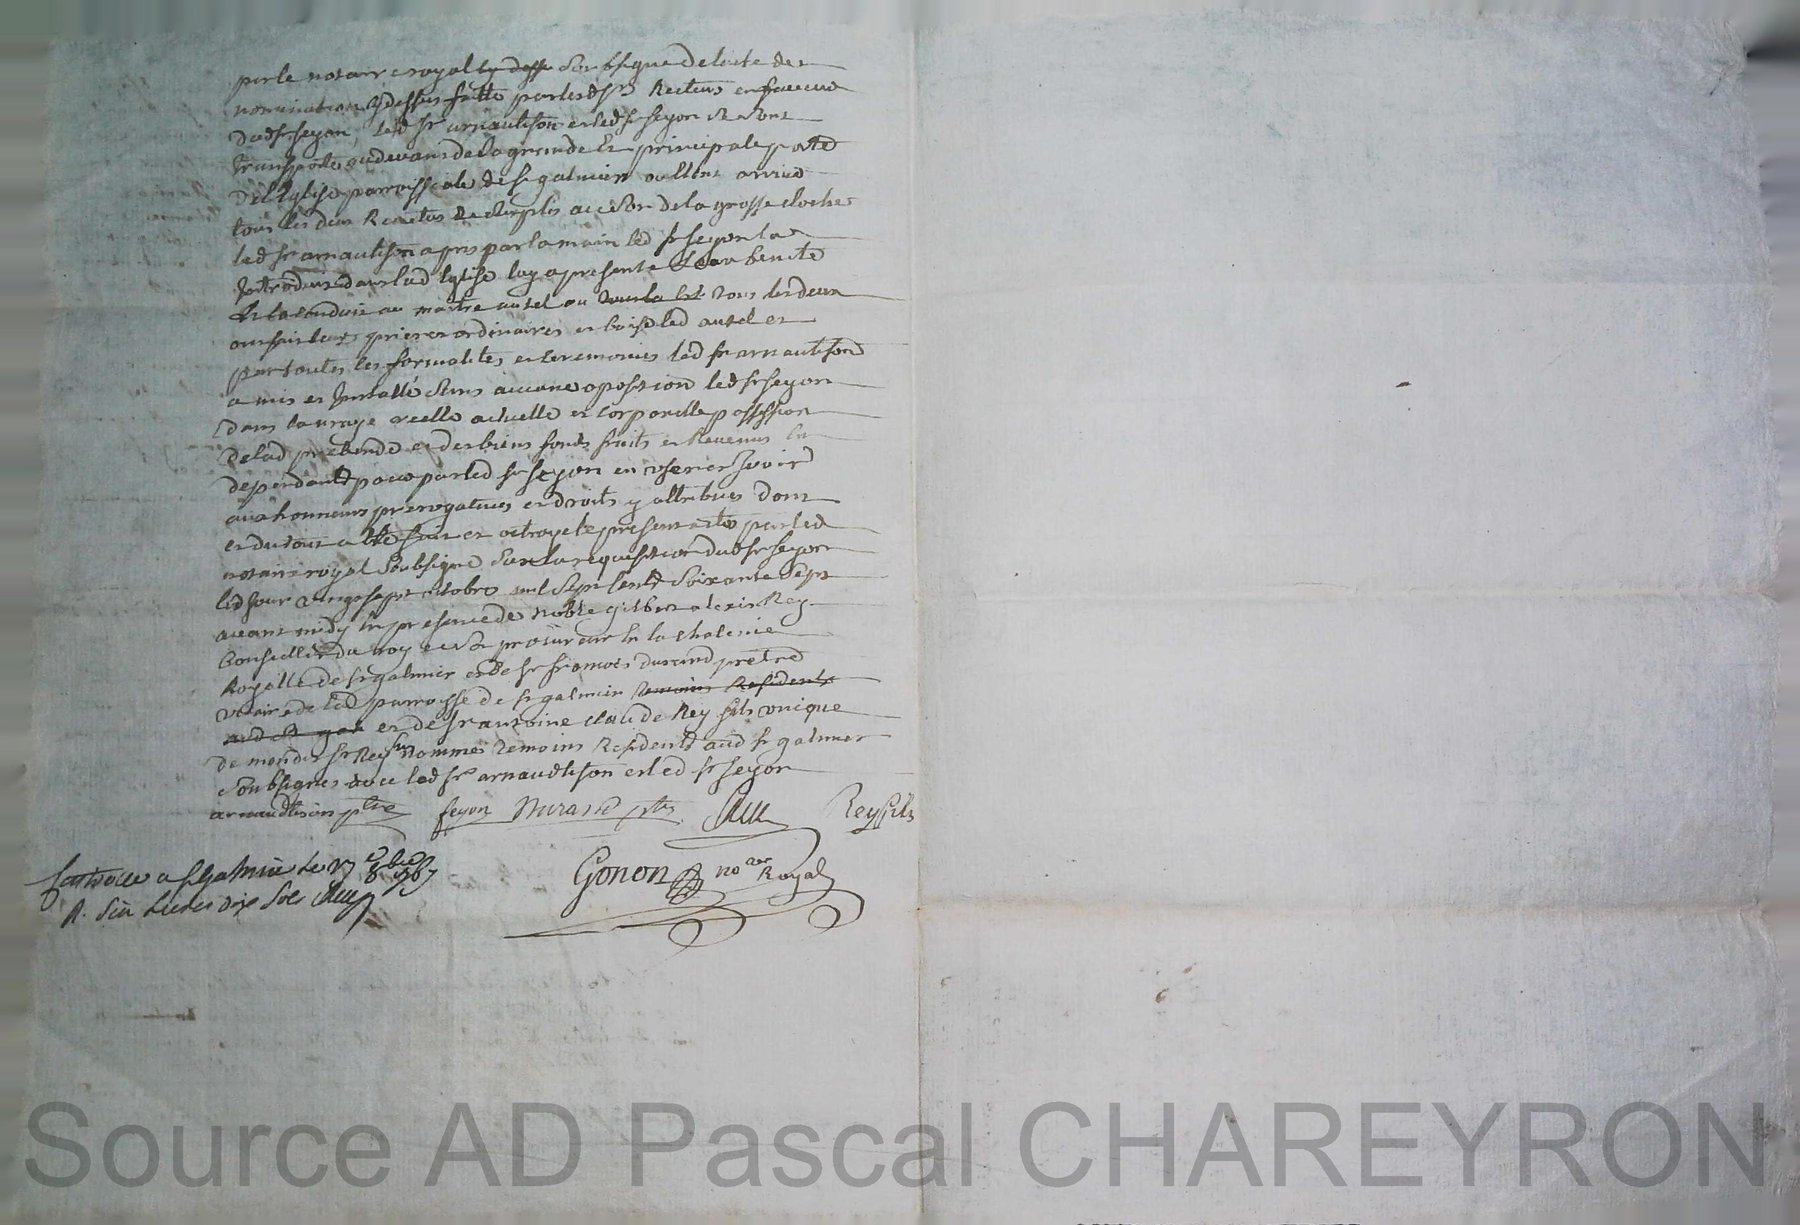 par le notaire royal cy dess soubsigné de lacte de
nomination cy dessus faitte par lesd srs Recteurs en faveur
dud sr seyon, led sr arnaultison et led sr seyon se sont
transportes au devant de la grande et principale porte
de l'Eglise parroissiale de st galmier ou étant arrivé
tous les deux Revetus de surplis au son de la grosse cloche
led sr arnaultison a pris par la main led sr seyon la
Introduit dans lad Eglise luy a presenté l'eau benite
et la conduit au maitre autel ou tous les deux
ont fait leurs prieres ordinaires et baisé led autel et
par toutes les formalités et ceremonies led sr arnaultison
a mis et Installé sans aucune oposition led sr seyon
dans la vraye reelle actuelle et corporelle possession
de lad prebende et des biens fonds fruits et Revenus en
dependants pour par led sr seyon en user et jouir
aux honneurs prerogatives et droits y attribués dont
et du tout a été fait et octroyé le present acte par led
notaire royal soubsigné sur la requisition dud sr seyon
led jour vingt sept octobre mil sept cents soixante sept
avant midy en presence de noble gilbert alexis Rey
Conseiller du roy et son procureur en la chatenie
Royalle de st galmier et de sr francois durand pretre
vicaire de lad parroisse de st galmier temoins Residents
aud st gal et de sr antoine claude Rey fils unique
de mondit sr Rey susnommés temoins Residents aud st galmier
soubsignes avec led sr arnaudtison et led sr seyon
arnaudtison ptre seyon Durand ptre Rey Rey fils
Controlle a st Galmier le 27 8bre 1767
R. six livres dix sols Rey
Gonon nore Royal
Source AD Pascal CHAREYRON